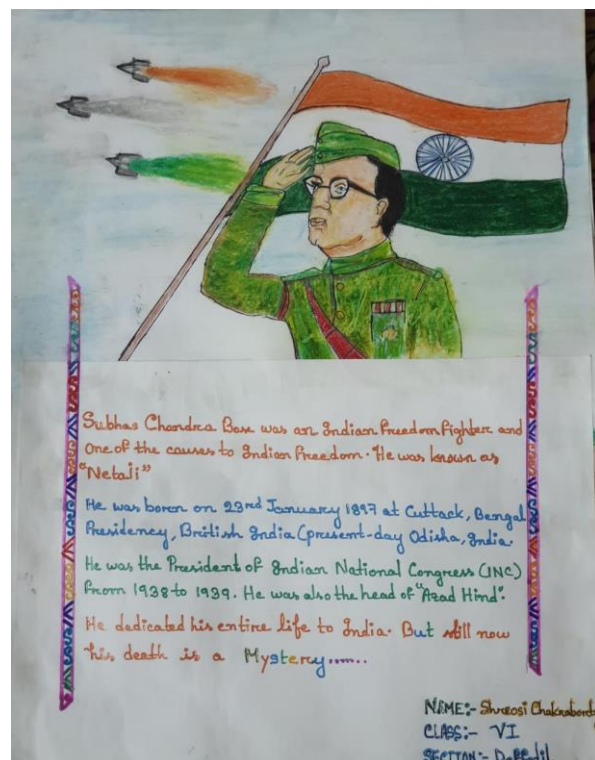 Subhas Chandra Bose was an Indian Freedom Fighter and
One of the causes to Indian Freedom. He was known as
"Netaji"
He was born on 23rd January 1897 at Cuttack, Bengal
Presidency, British India (present-day Odisha, India.
He was the President of Indian National Congress (INC)
From 1938 to 1939. He was also the head of "Azad Hind".
He dedicated his entire life to India. But still now
his death is a Mystery.....
NAME:- Shreosi Chakrabort
CLASS:- VI
SECTION:- Daffodil